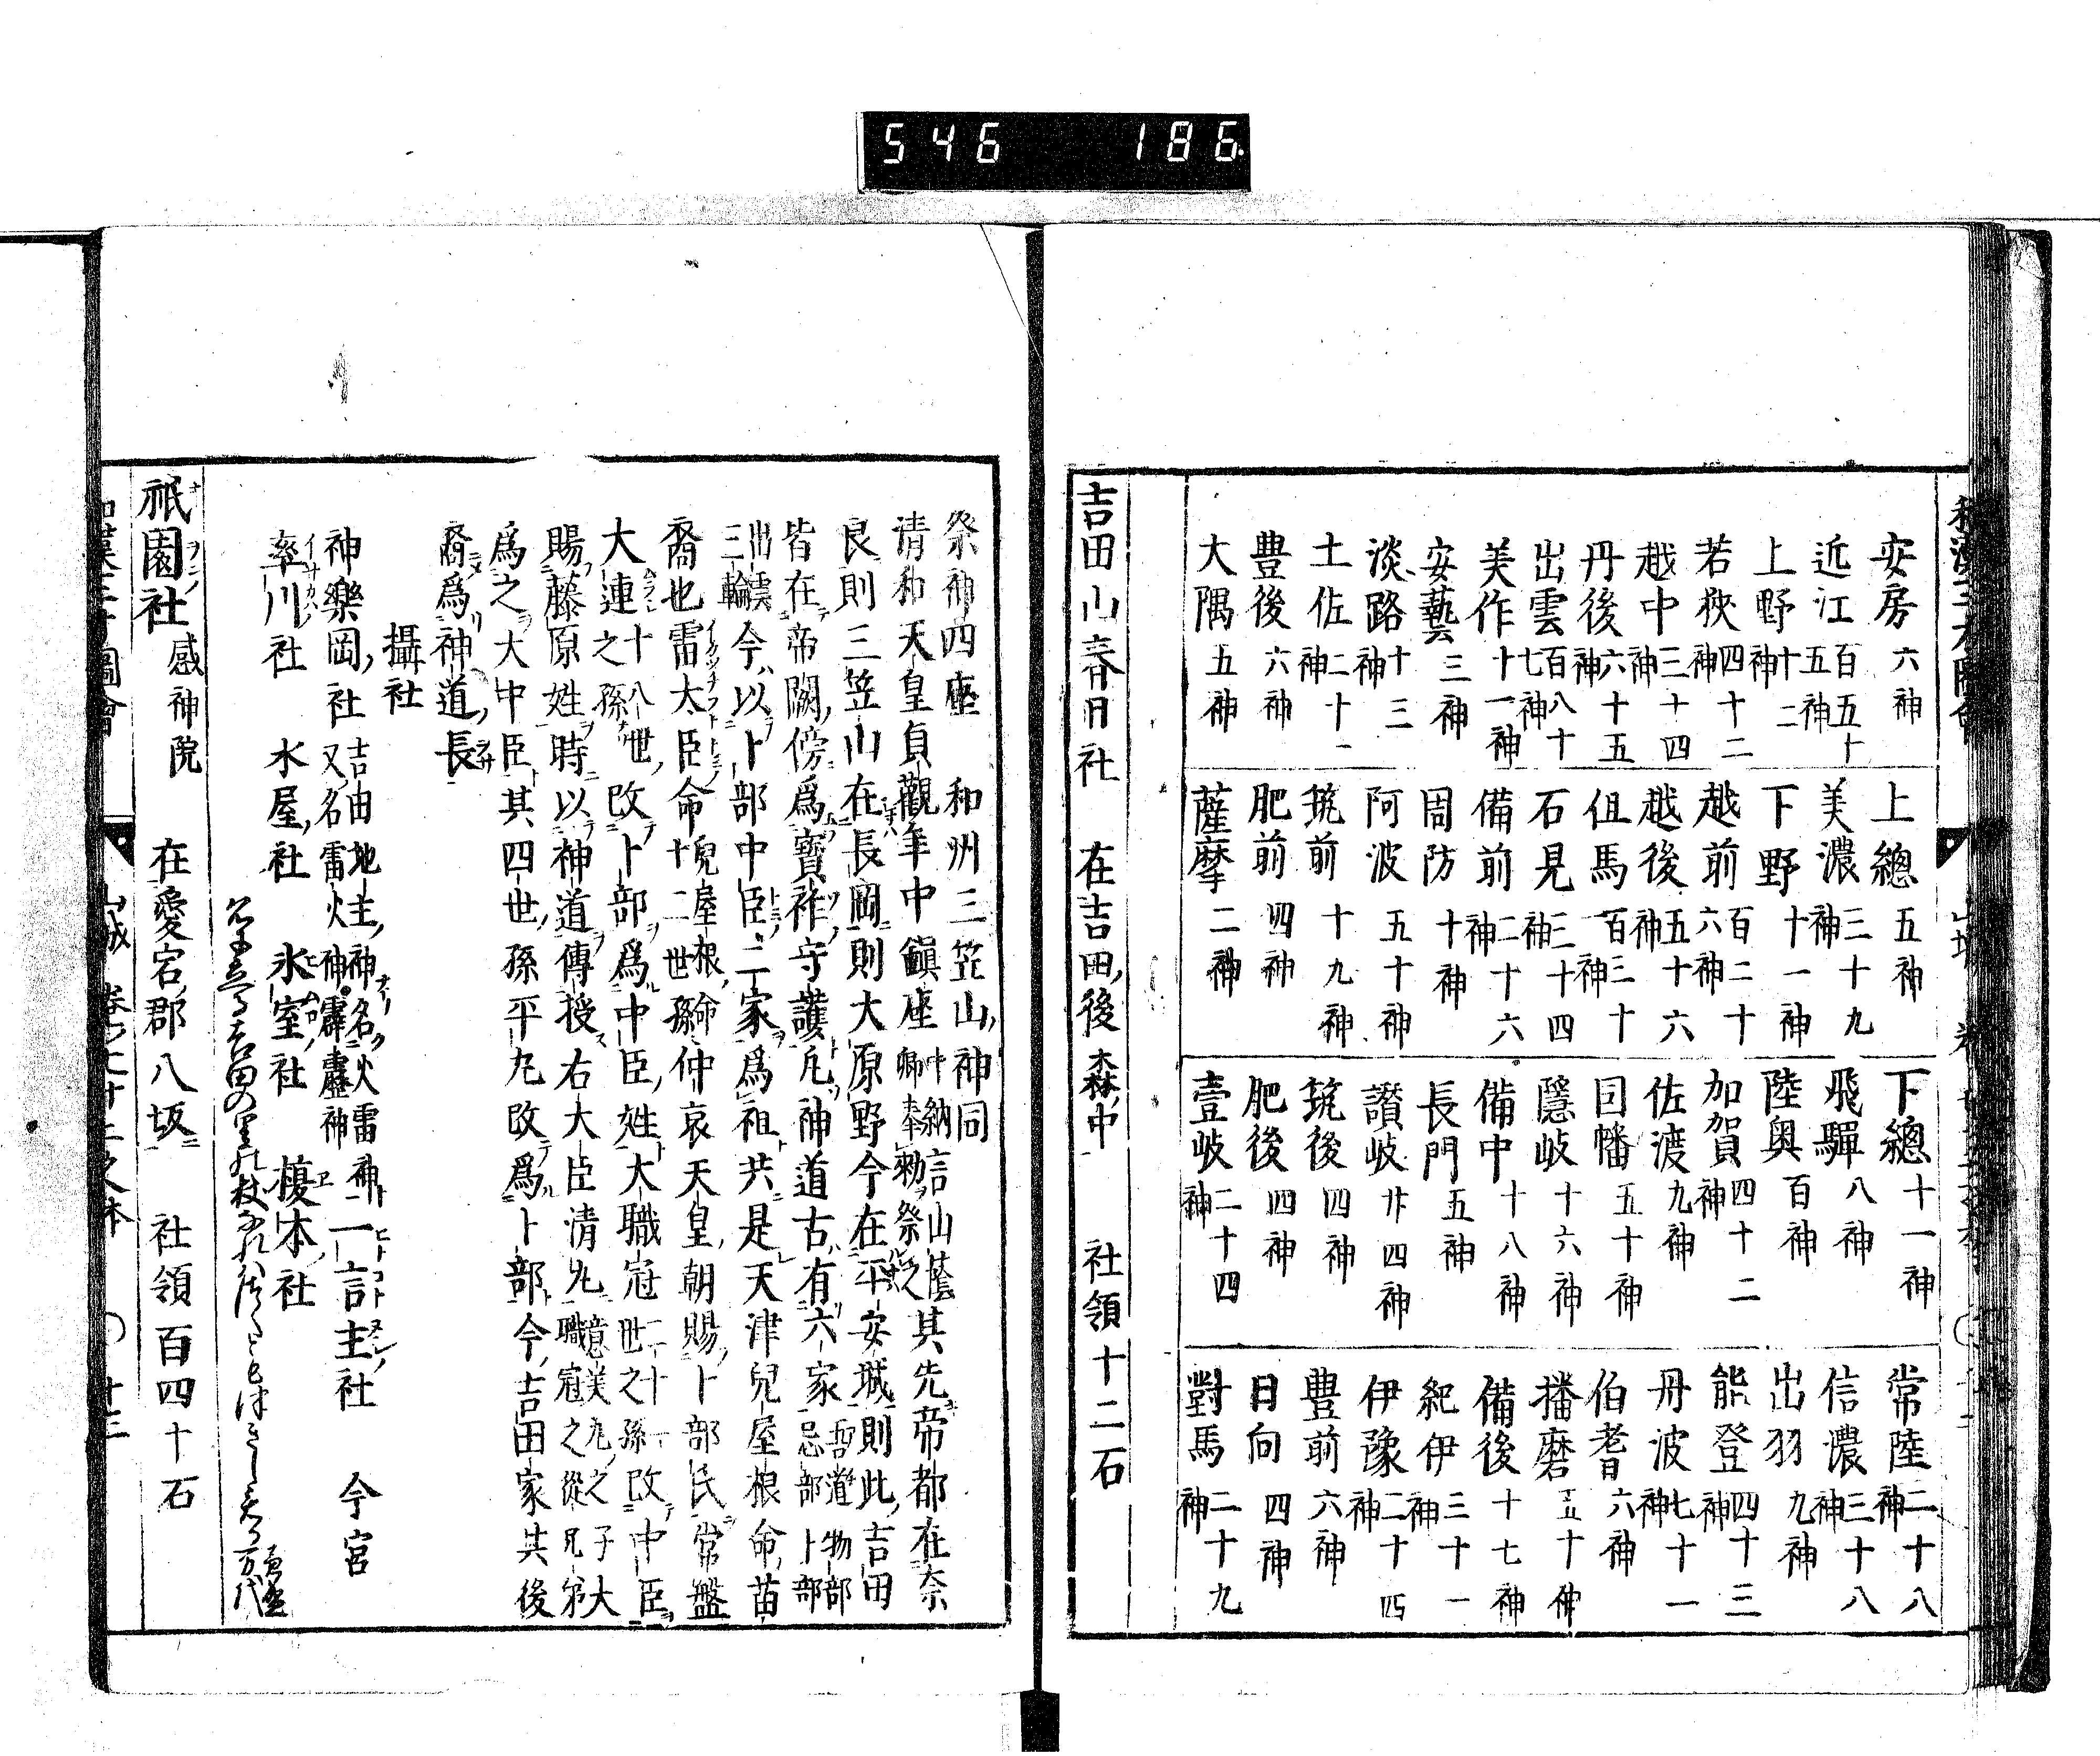 546 186
安房 六神
上總 五神
下總 十一神
常陸 二十八神
近江 百五十五神
美濃 三十九神
飛驒 八神
信濃 三十八神
上野 十二神
下野 十一神
陸奥 百神
出羽 九神
若狹 四十二神
越前 百二十六神
加賀 四十二神
能登 四十三神
越中 三十四神
越後 五十六神
佐渡 九神
丹波 七十一神
丹後 六十五神
但馬 百三十神
因幡 五十神
伯耆 六神
出雲 百八十七神
石見 三十四神
隱岐 十六神
播磨 五十神
美作 十一神
備前 二十六神
備中 十八神
備後 十七神
安藝 三神
周防 十神
長門 五神
紀伊 三十一神
淡路 十三神
阿波 五十神
讃岐 廿四神
伊豫 二十四神
土佐 二十一神
筑前 十九神
筑後 四神
豊前 六神
豊後 六神
肥前 四神
肥後 四神
日向 四神
大隅 五神
薩摩 二神
壹岐 二十四神
對馬 二十九神
吉田山春日社 在吉田後森中 社領十二石
祭神四座 和州三笠山神同
清和天皇貞觀年中鎭座 中納言山蔭卿奉勅祭之 其先帝都在奈
良則三笠山在長岡則大原野今在平安城則此吉田
皆在帝闕傍爲寶祚守護凡神道古有六家 忌部 卜部 物部
出雲三輪 今以卜部中臣二家爲祖共是天津兒屋根命苗
裔也雷大臣命 兒屋根命十二世孫 仲哀天皇朝賜卜部氏常盤
大連 十八世之孫 改卜部爲中臣姓大職冠 二十一世之孫 改中臣
賜藤原姓時以神道傳授右大臣清丸 意美丸之子大職冠之從兄弟
爲之大中臣其四世孫平丸改爲卜部今吉田家其後
裔爲神道長
攝社
神樂岡社 吉田地主神名火雷神 又名雷火神霹靂神 一言主社 今宮
率川社 水屋社 氷室社 榎本社
祇園社 感神院 在愛宕郡八坂 社領百四十石